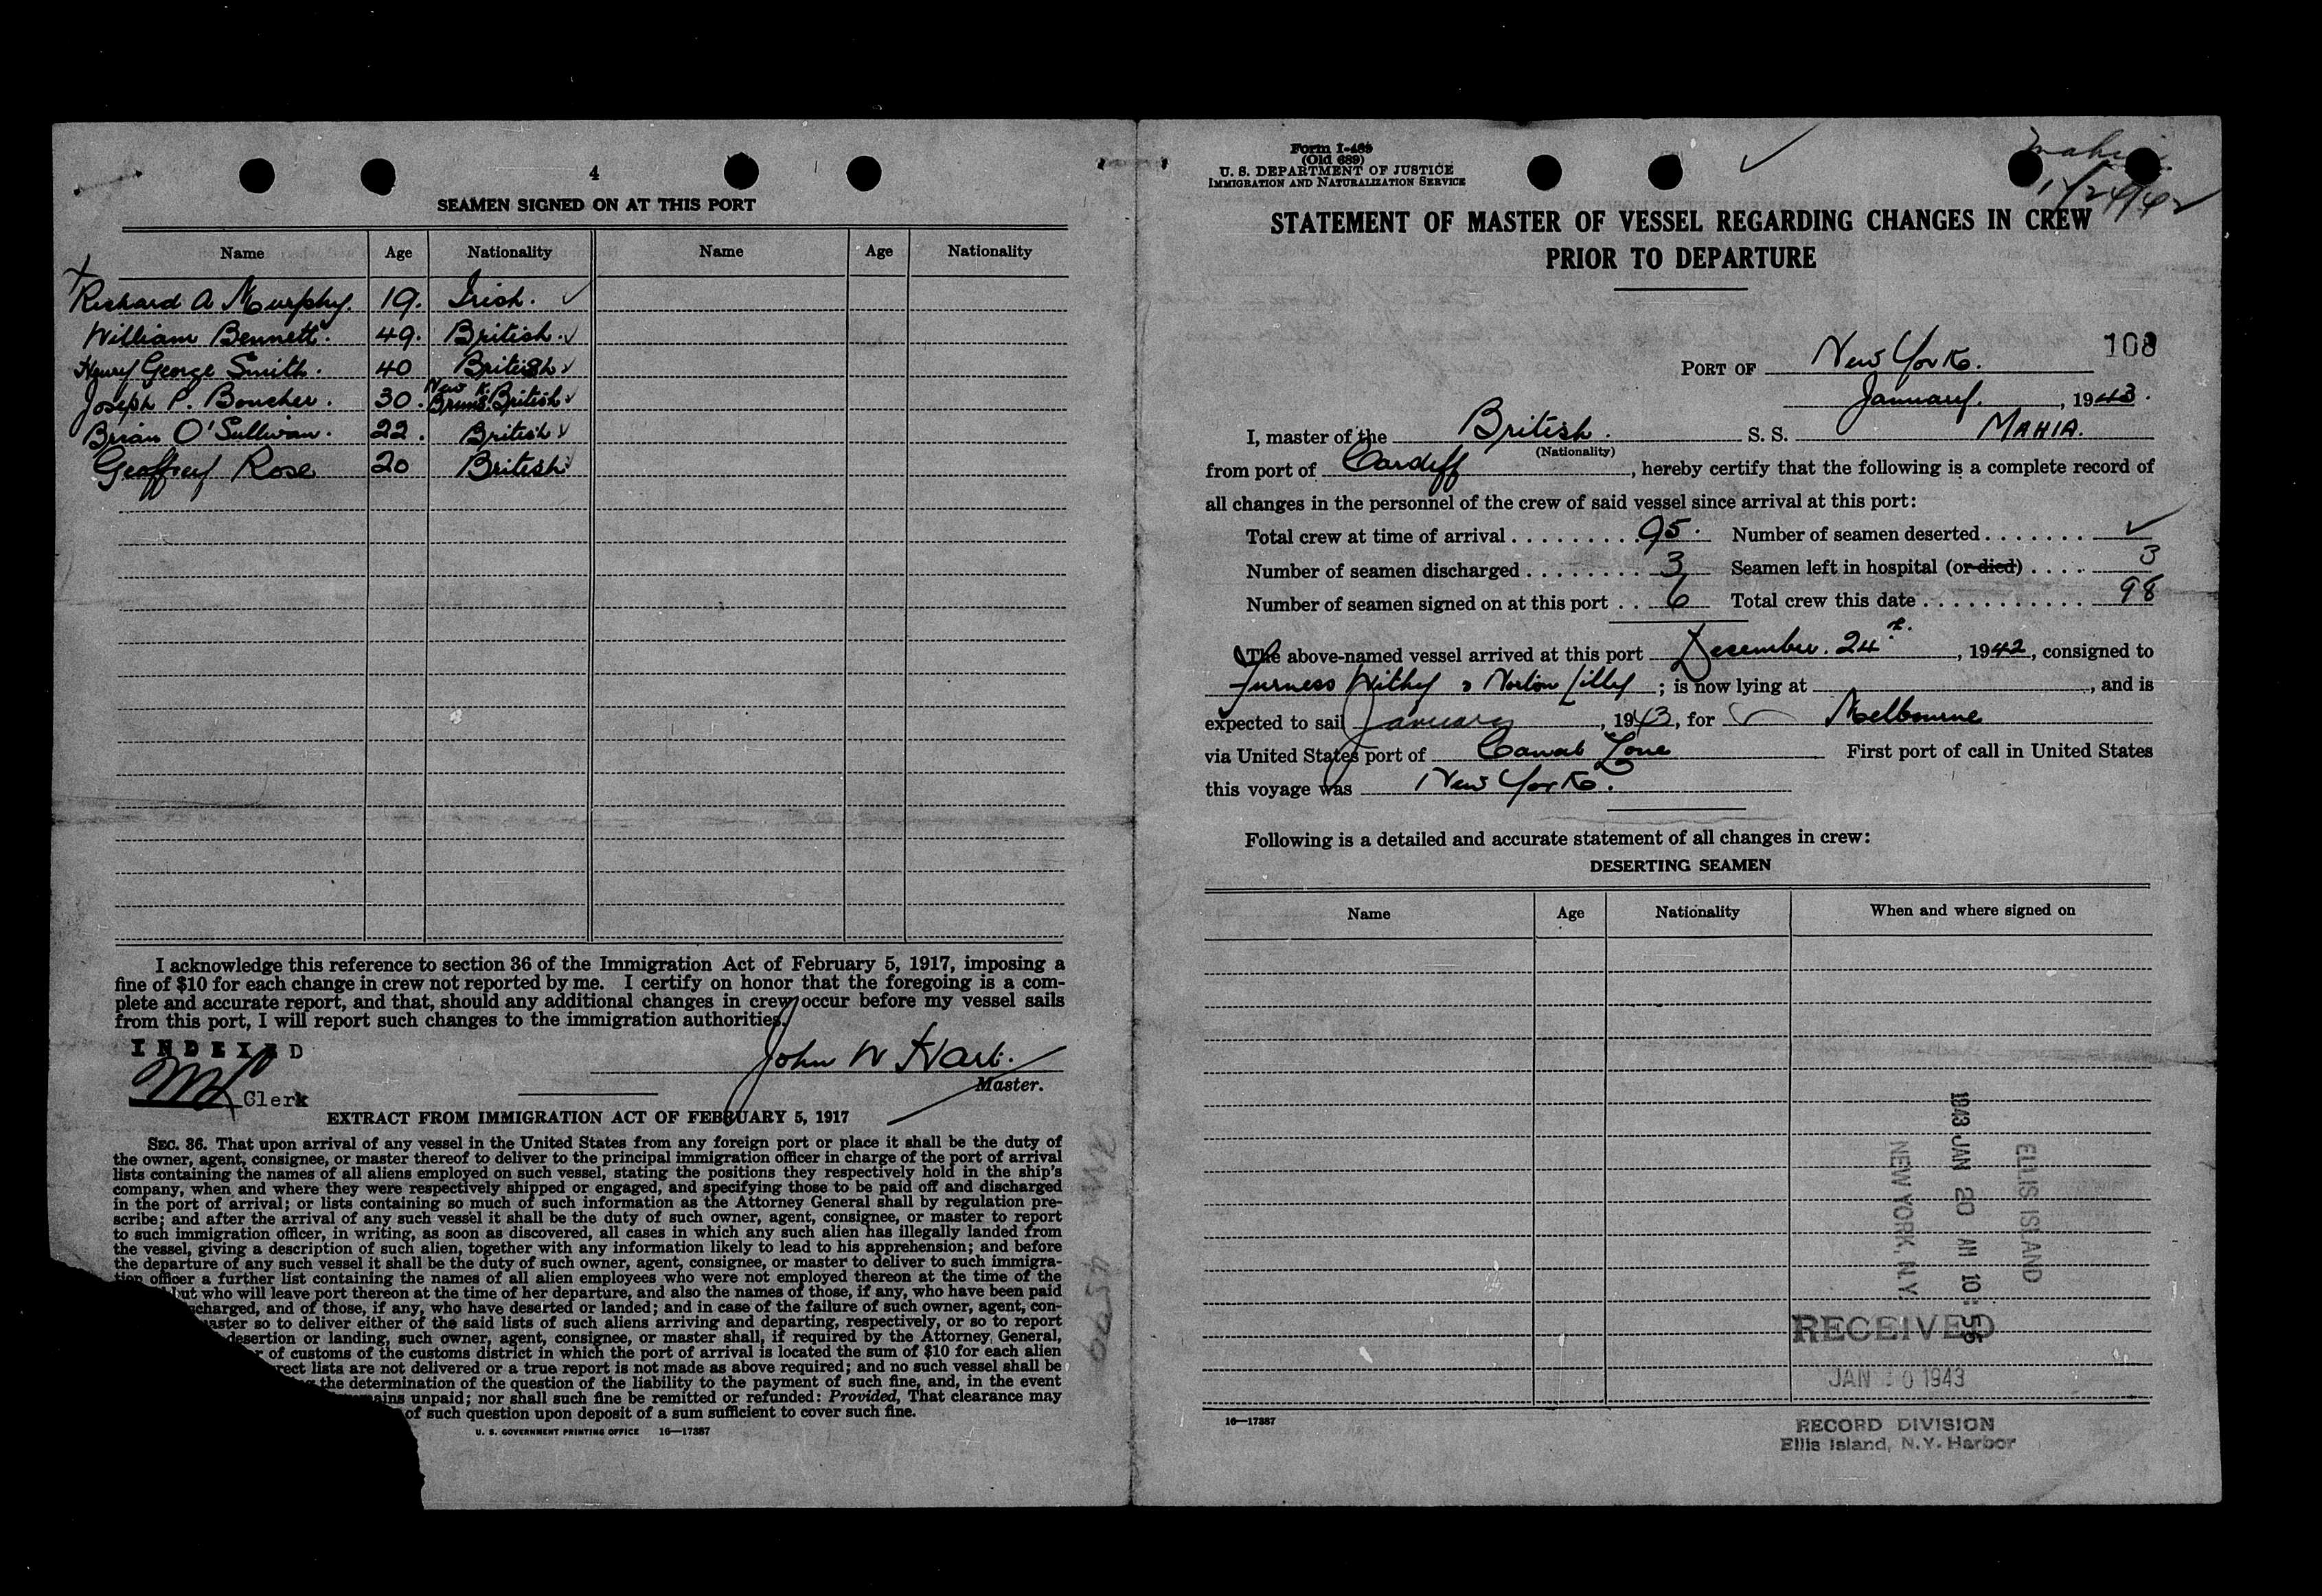 4
SEAMEN SIGNED ON AT THIS PORT
Name Age Nationality Name Age Nationality
Richard A Murphy. 19. Irish. ✓
William Bennett. 49. British. ✓
Henry George Smith. 40 British ✓
Joseph P. Boucher. 30. New Bruns. K. British ✓
Brian O'Sullivan. 22. British ✓
Geoffrey Rose 20 British
I acknowledge this reference to section 36 of the Immigration Act of February 5, 1917, imposing a
fine of $10 for each change in crew not reported by me. I certify on honor that the foregoing is a com-
plete and accurate report, and that, should any additional changes in crew occur before my vessel sails
from this port, I will report such changes to the immigration authorities.
INDEXED
John W Hart.
Master.
Clerk
EXTRACT FROM IMMIGRATION ACT OF FEBRUARY 5, 1917
SEC. 36. That upon arrival of any vessel in the United States from any foreign port or place it shall be the duty of
the owner, agent, consignee, or master thereof to deliver to the principal immigration officer in charge of the port of arrival
lists containing the names of all aliens employed on such vessel, stating the positions they respectively hold in the ship's
company, when and where they were respectively shipped or engaged, and specifying those to be paid off and discharged
in the port of arrival; or lists containing so much of such information as the Attorney General shall by regulation pre-
scribe; and after the arrival of any such vessel it shall be the duty of such owner, agent, consignee, or master to report
to such immigration officer, in writing, as soon as discovered, all cases in which any such alien has illegally landed from
the vessel, giving a description of such alien, together with any information likely to lead to his apprehension; and before
the departure of any such vessel it shall be the duty of such owner, agent, consignee, or master to deliver to such immigra-
tion officer a further list containing the names of all alien employees who were not employed thereon at the time of the
but who will leave port thereon at the time of her departure, and also the names of those, if any, who have been paid
scharged, and of those, if any, who have deserted or landed; and in case of the failure of such owner, agent, con-
aster so to deliver either of the said lists of such aliens arriving and departing, respectively, or so to report
desertion or landing, such owner, agent, consignee, or master shall, if required by the Attorney General,
r of customs of the customs district in which the port of arrival is located the sum of $10 for each alien
rect lists are not delivered or a true report is not made as above required; and no such vessel shall be
the determination of the question of the liability to the payment of such fine, and, in the event
ains unpaid; nor shall such fine be remitted or refunded: Provided, That clearance may
of such question upon deposit of a sum sufficient to cover such fine.
U. S. GOVERNMENT PRINTING OFFICE 16—17387
Form I-489
(Old 689)
U. S. DEPARTMENT OF JUSTICE
IMMIGRATION AND NATURALIZATION SERVICE
STATEMENT OF MASTER OF VESSEL REGARDING CHANGES IN CREW
PRIOR TO DEPARTURE
108
PORT OF New York.
January, 1943.
I, master of the British. S. S. MAHIA.
(Nationality)
from port of Cardiff, hereby certify that the following is a complete record of
all changes in the personnel of the crew of said vessel since arrival at this port:
Total crew at time of arrival 95. Number of seamen deserted ✓
Number of seamen discharged 3 Seamen left in hospital (or died) 3
Number of seamen signed on at this port 6 Total crew this date 98
The above-named vessel arrived at this port December. 24th, 1942, consigned to
Furness Withy & Norton Lilly; is now lying at , and is
expected to sail January, 1943, for Melbourne
via United States port of Canal Zone First port of call in United States
this voyage was New York.
Following is a detailed and accurate statement of all changes in crew:
DESERTING SEAMEN
Name Age Nationality When and where signed on
ELLIS ISLAND
1943 JAN 20 AM 10:56
NEW YORK, N.Y.
RECEIVED
JAN 0 1943
RECORD DIVISION
Ellis Island, N.Y. Harbor
16—17387